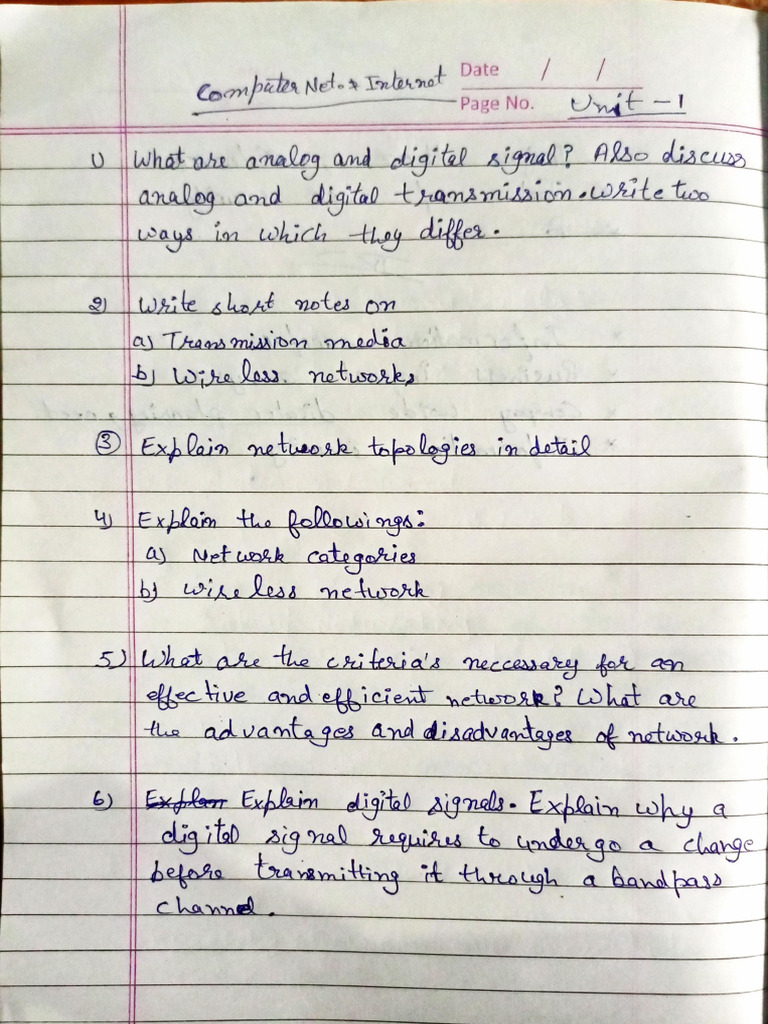 Computer Net. & Internet
Date / /
Page No. Unit - 1
1) What are analog and digital signal? Also discuss
analog and digital transmission. Write two
ways in which they differ.
2) Write short notes on
a) Transmission media
b) Wireless. networks
3) Explain network topologies in detail
4) Explain the followings:
a) Network categories
b) Wireless network
5) What are the criteria's neccessary for an
effective and efficient network? What are
the advantages and disadvantages of network.
6) Explan Explain digital signals. Explain why a
digital signal requires to undergo a change
before transmitting it through a bandpass
channel.